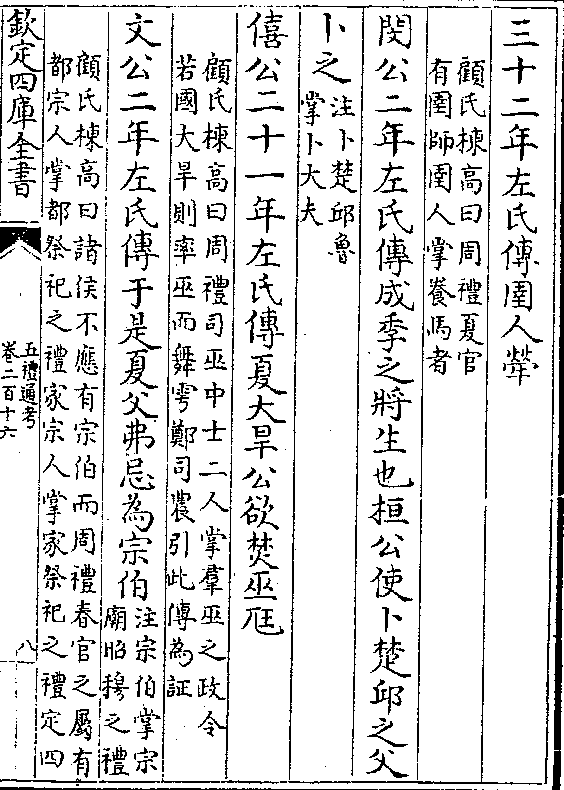 三十二年左氏傳圉人犖
顧氏棟高曰周禮夏官
有圉師圉人掌養馬者
閔公二年左氏傳成季之將生也桓公使卜楚邱之父
卜之
注卜楚邱魯
掌卜大夫
僖公二十一年左氏傳夏大旱公欲焚巫尫
顧氏棟高曰周禮司巫中士二人掌羣巫之政令
若國大旱則率巫而舞雩鄭司農引此傳為証
文公二年左氏傳于是夏父弗忌為宗伯
注宗伯掌宗
廟昭穆之禮
顧氏棟高曰諸侯不應有宗伯而周禮春官之屬有
都宗人掌都祭祀之禮家宗人掌家祭祀之禮定四
欽定四庫全書
五禮通考
卷二百十六
八